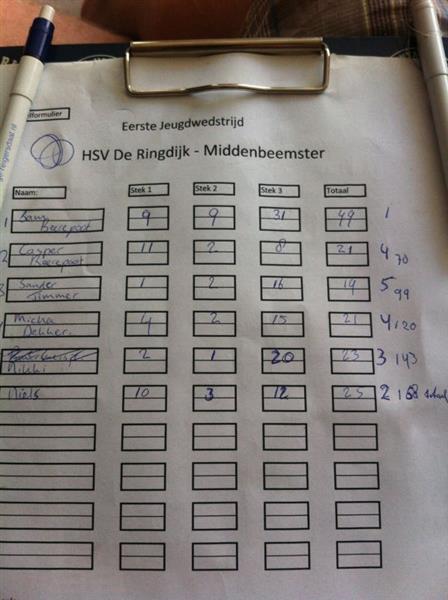 lformulier
Eerste Jeugdwedstrijd
HSV De Ringdijk - Middenbeemster
Naam: Stek 1 Stek 2 Stek 3 Totaal
1 Beerepoot 9 9 31 49 1
2 Casper Beerepoot 11 2 8 21 4 70
3 Sander Timmer 1 2 16 19 5 99
Micha Dekker 4 2 15 21 4 120
Nikki 2 1 20 23 3 143
Niels 10 3 12 25 2 168